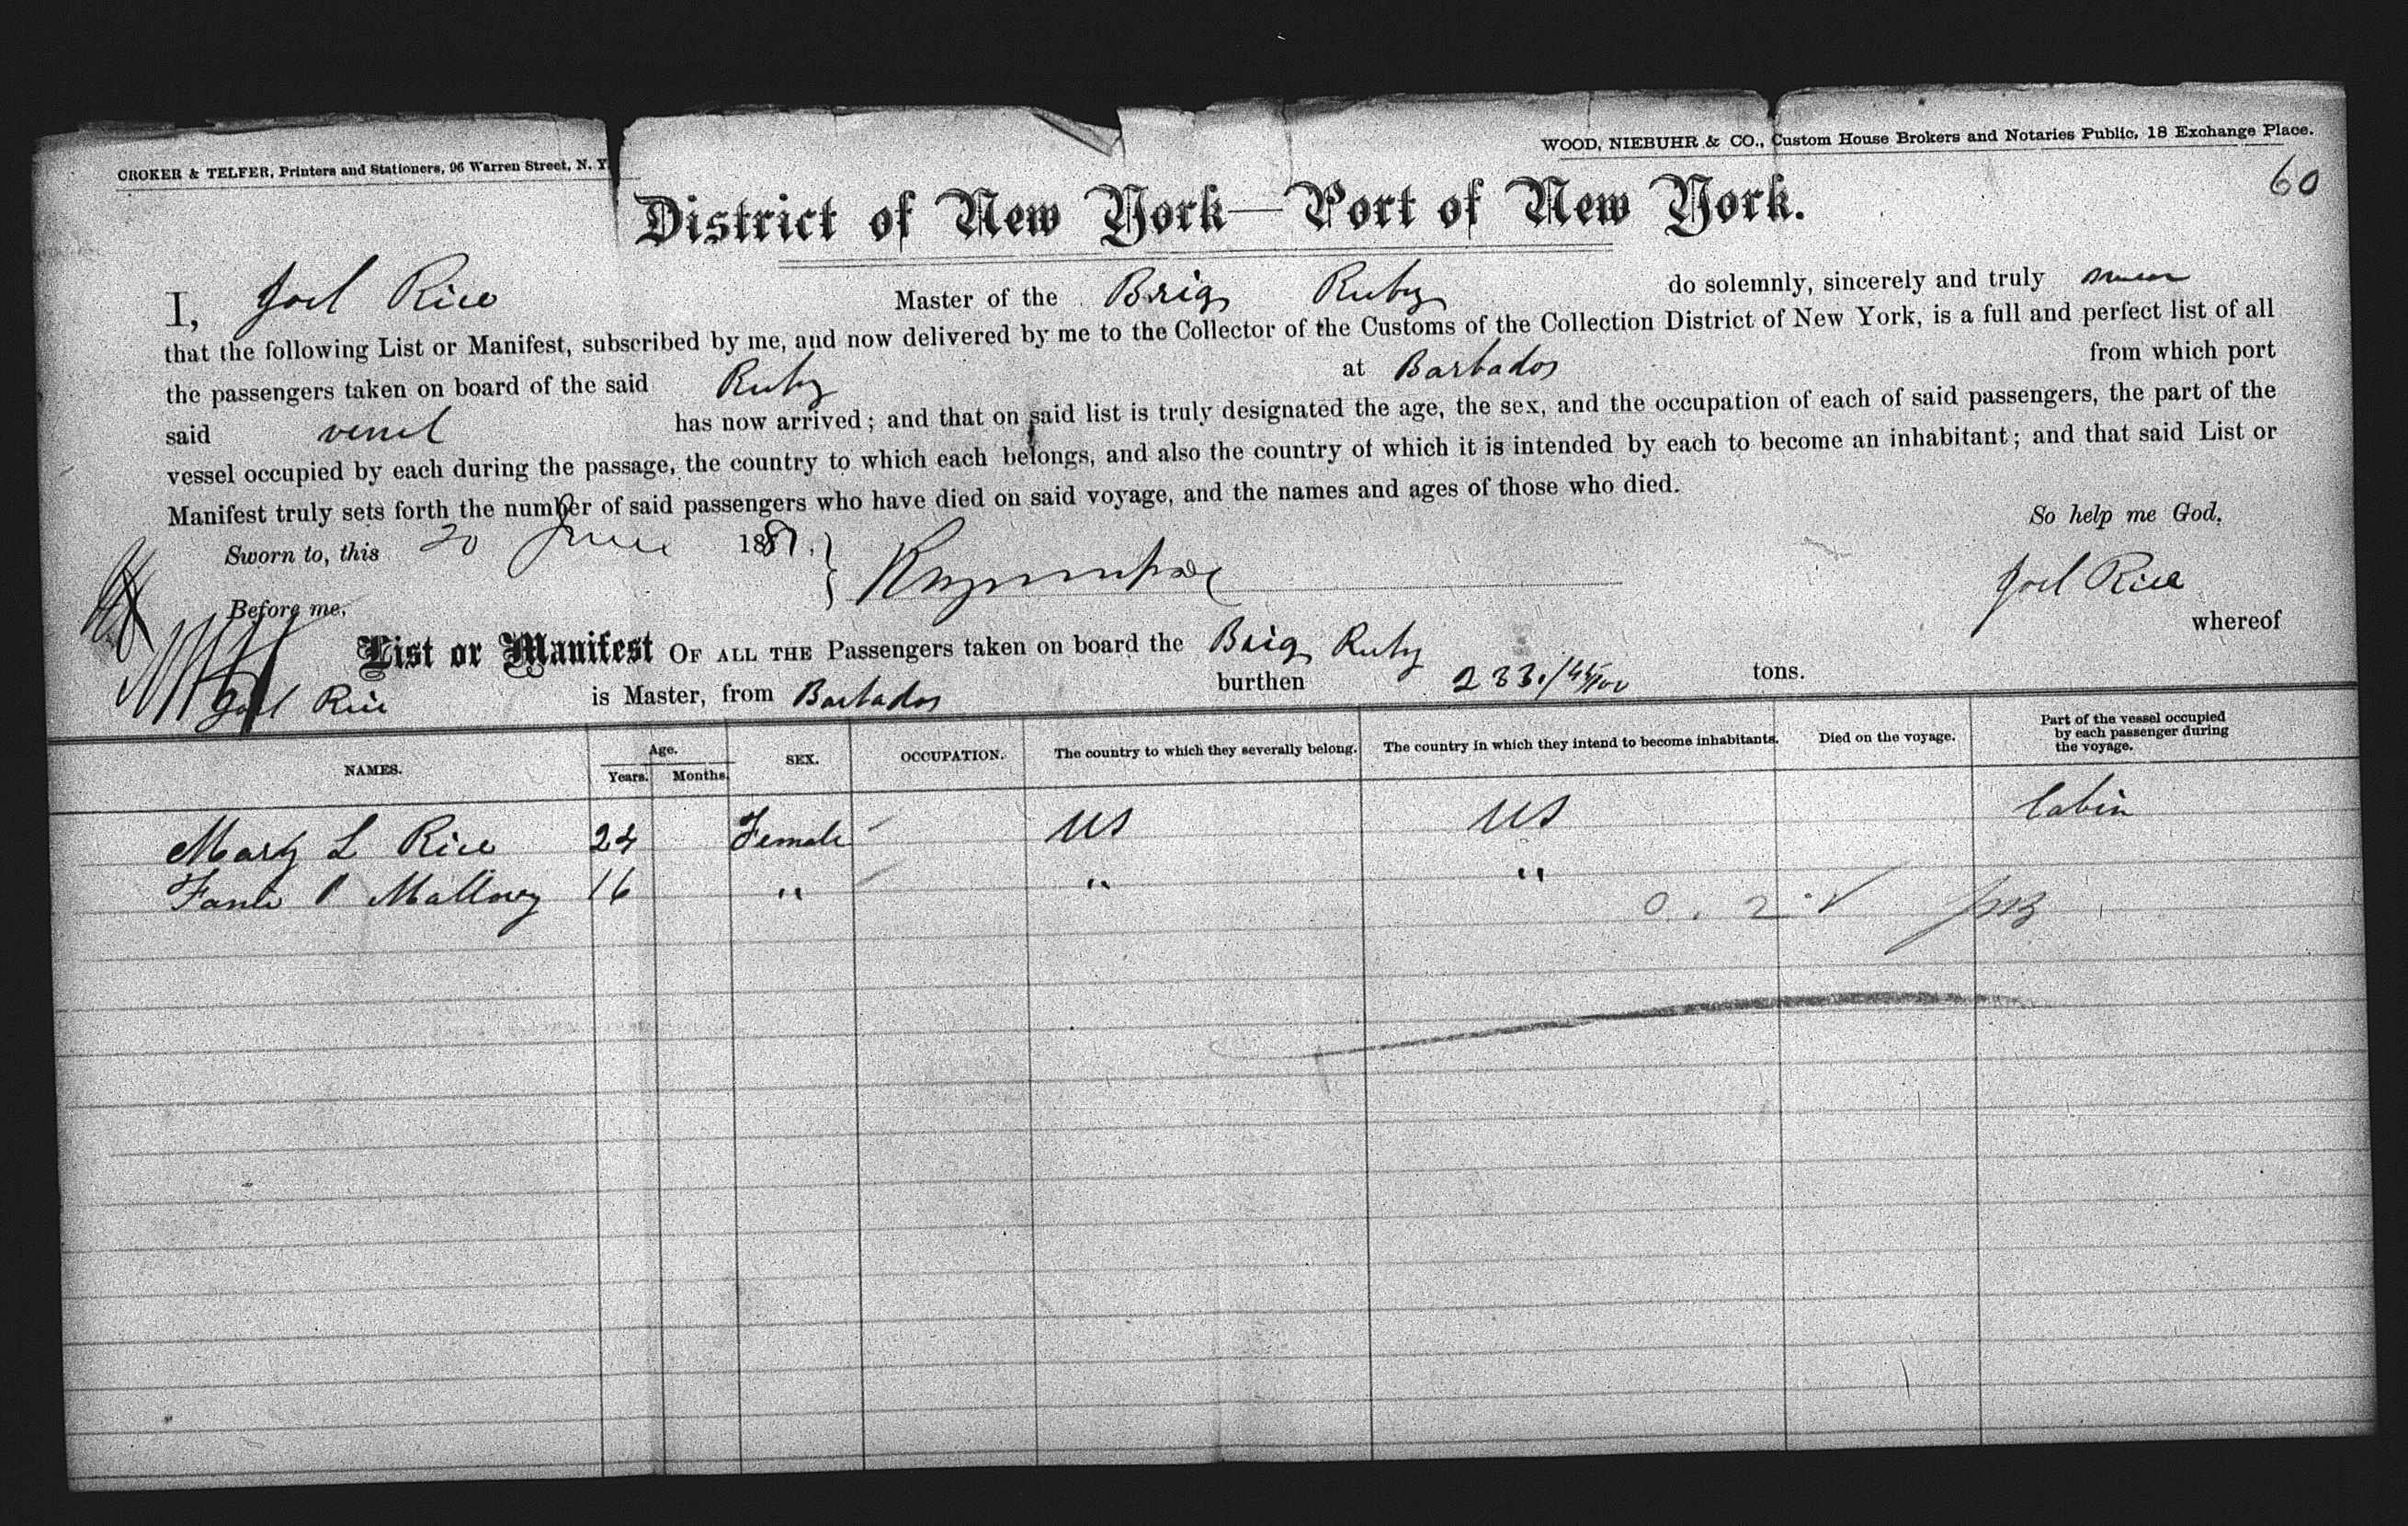 CROKER & TELFER, Printers and Stationers, 96 Warren Street, N. Y.
WOOD, NIEBUHR & CO., Custom House Brokers and Notaries Public, 18 Exchange Place.
60
District of New York—Port of New York.
I, Joel Rice Master of the Brig Ruby do solemnly, sincerely and truly swear
that the following List or Manifest, subscribed by me, and now delivered by me to the Collector of the Customs of the Collection District of New York, is a full and perfect list of all
the passengers taken on board of the said Ruby at Barbados from which port
said vessel has now arrived; and that on said list is truly designated the age, the sex, and the occupation of each of said passengers, the part of the
vessel occupied by each during the passage, the country to which each belongs, and also the country of which it is intended by each to become an inhabitant; and that said List or
Manifest truly sets forth the number of said passengers who have died on said voyage, and the names and ages of those who died.
So help me God,
Sworn to, this 20 June 1881,
Joel Rice
Before me,
List or Manifest OF ALL THE Passengers taken on board the Brig Ruby whereof
Joel Rice is Master, from Barbados burthen 233. tons.
NAMES. Age. Years. Months. SEX. OCCUPATION. The country to which they severally belong. The country in which they intend to become inhabitants. Died on the voyage. Part of the vessel occupied by each passenger during the voyage.
Mary L Rice 24 Female US US Cabin
Mallowy 16 " " "
0. 2